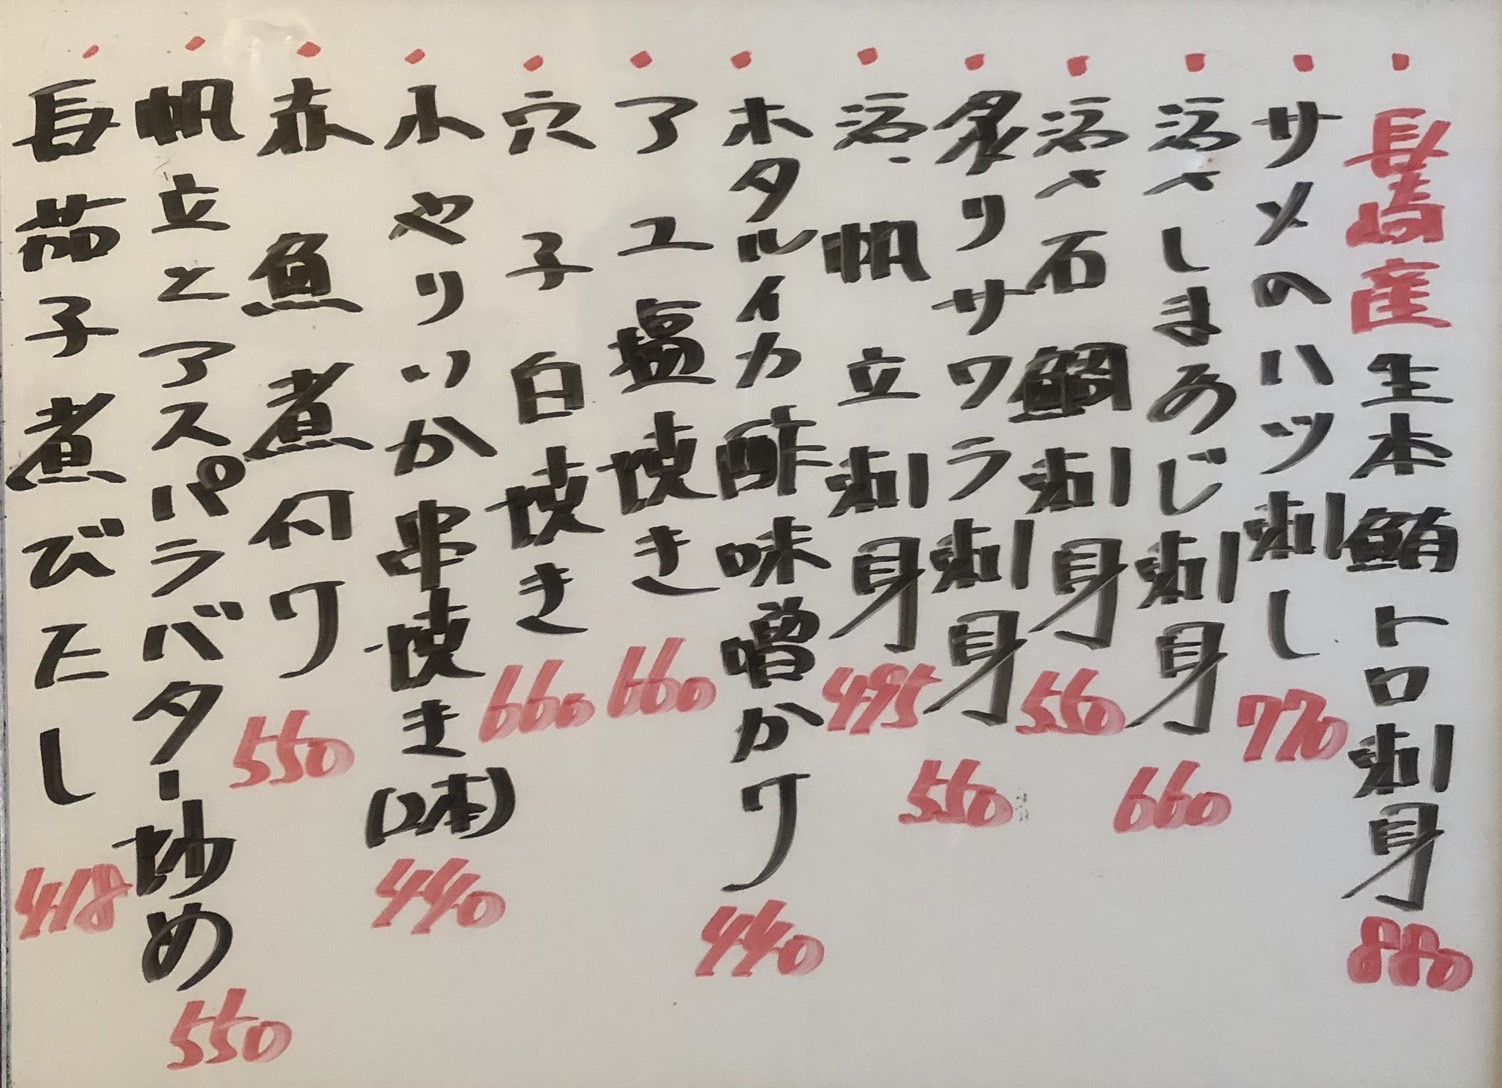 ・長崎産生本鮪トロ刺身 880
・サメのハツ刺し 770
・活〆しまあじ刺身 660
・活〆石鯛刺身 550
・炙りサワラ刺身 550
・活帆立刺身 495
・ホタルイカ酢味噌かけ 440
・アユ塩焼き 660
・穴子白焼き 660
・小やりいか串焼き(2本) 440
・赤魚煮付け 550
・帆立とアスパラバター炒め 550
・長茄子煮びたし 418